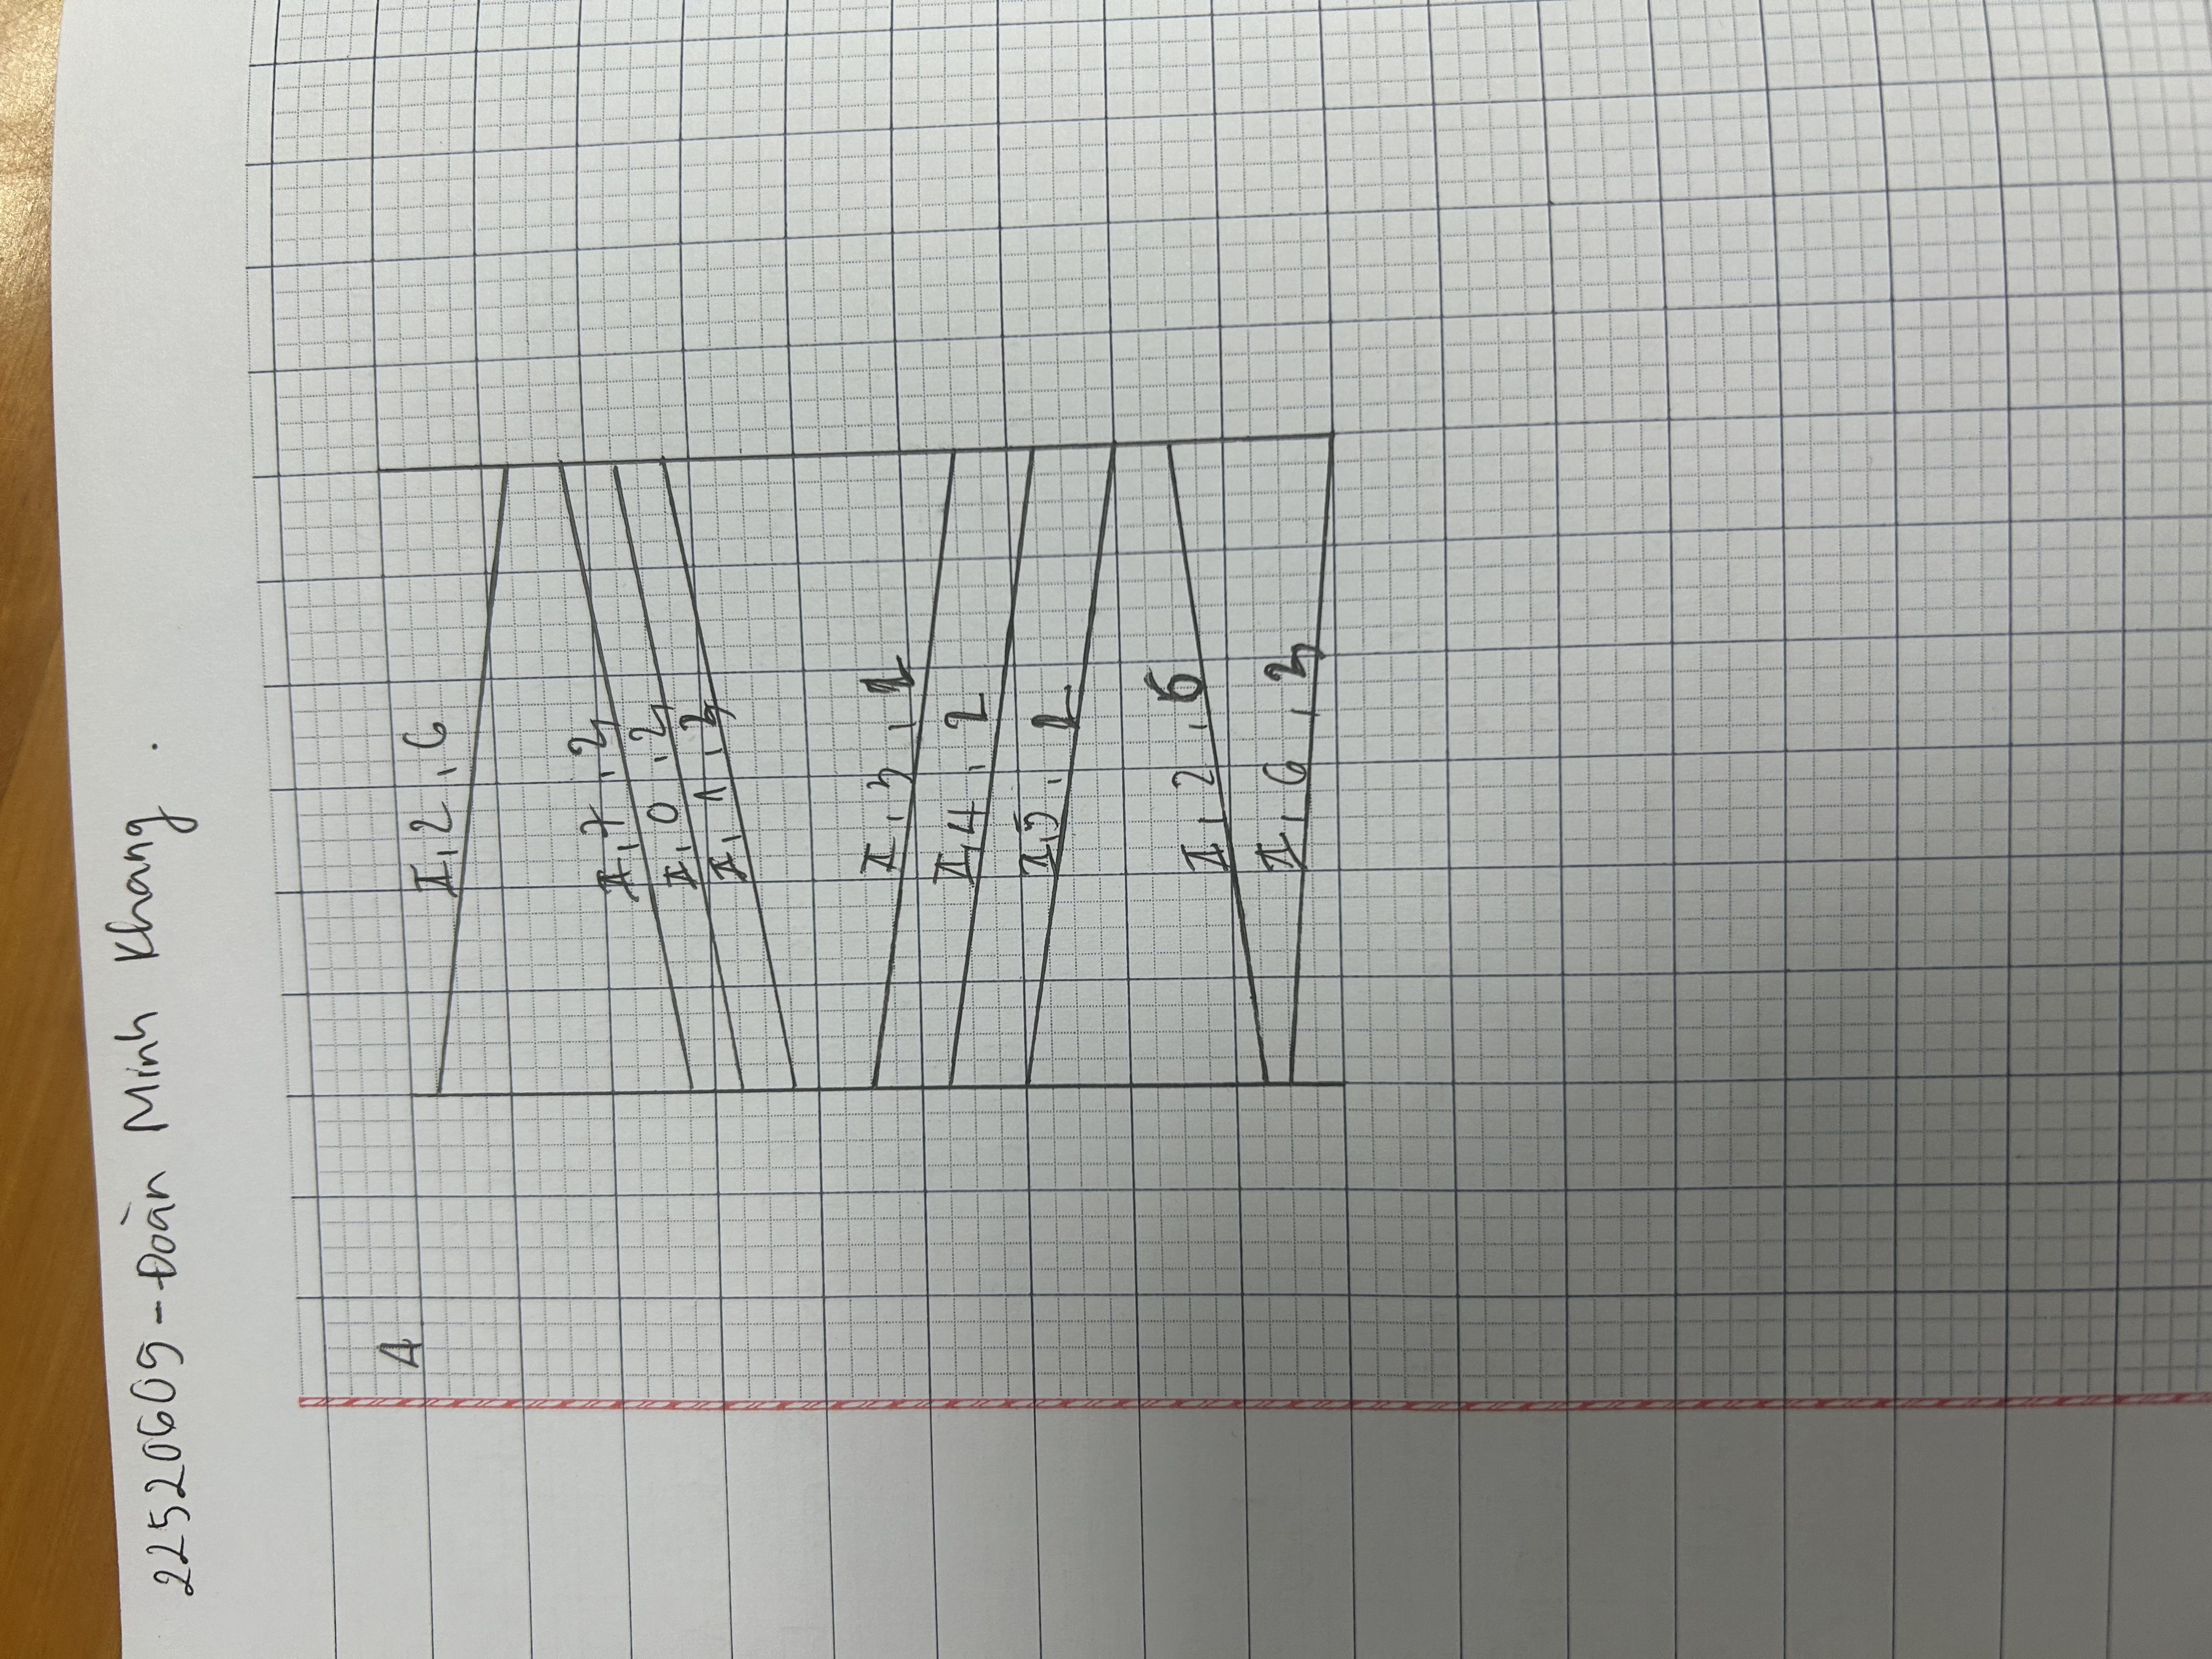 22520609 - Đoàn Minh Khang .
A
I, 2, 6
I, 7, 2
I, 0, 2
I, 1, 3
I, 3, 2
I, 4, 2
I, 5, 2
I, 2, 6
I, 6, 3